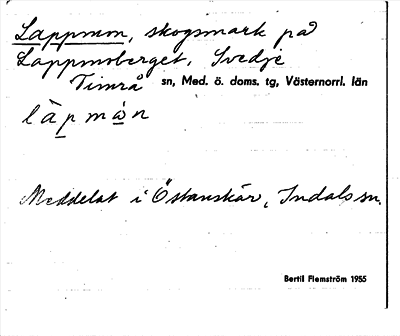 Lappmon, skogsmark på
Lappmoberget, Svedje
Timrå sn, Med. ö. doms. tg, Västernorrl. län
làpmàn
Meddelat i Östanskär, Indals sn.
Bertil Flemström 1955